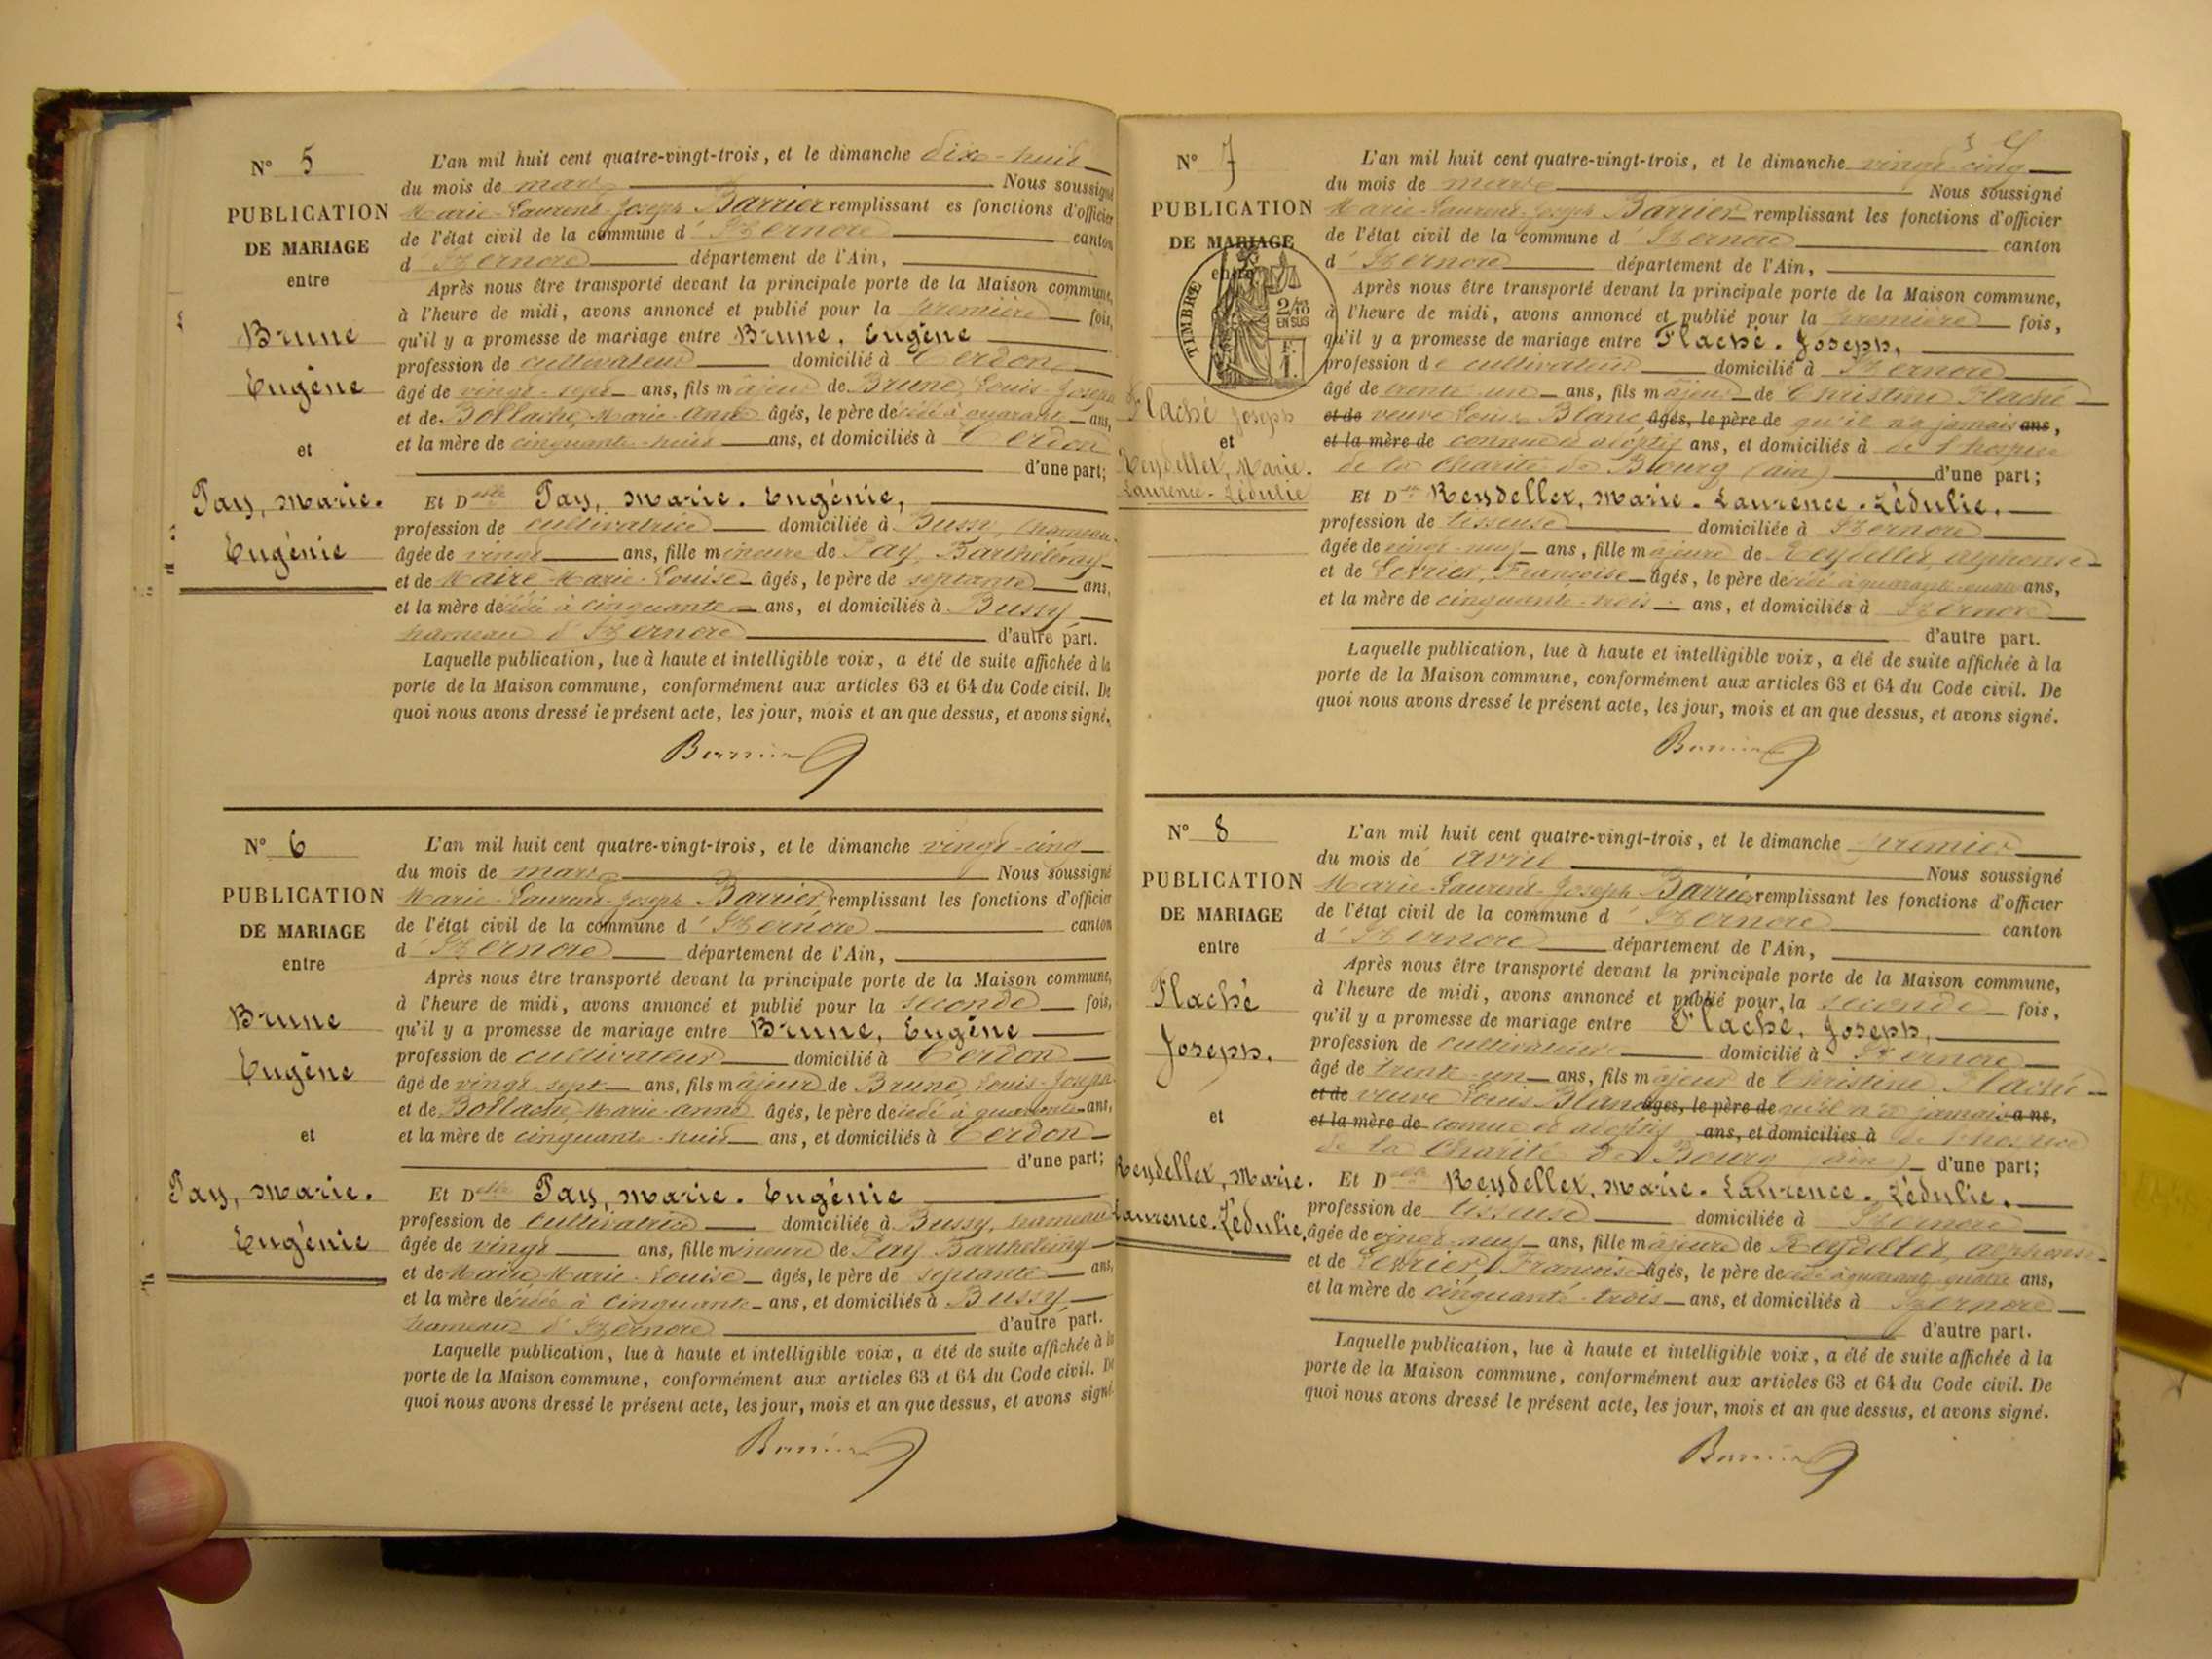 N° 5
PUBLICATION
DE MARIAGE
entre
Brune
Eugène
et
Pay, Marie.
Eugénie
L'an mil huit cent quatre-vingt-trois, et le dimanche dix-huit
du mois de mars Nous soussigné
Marie-Laurent-Joseph Barrier remplissant es fonctions d'officier
de l'état civil de la commune d'Izernore canton
d'Izernore département de l'Ain,
Après nous être transporté devant la principale porte de la Maison commune,
à l'heure de midi, avons annoncé et publié pour la première fois,
qu'il y a promesse de mariage entre Brune, Eugène
profession de cultivateur domicilié à Cerdon
âgé de vingt-sept ans, fils majeur de Brune, Louis-Joseph
et de Bollache, Marie-Anne âgés, le père décédé à quarante ans,
et la mère de cinquante-huit ans, et domiciliés à Cerdon
d'une part;
Et Delle Pay, Marie. Eugénie,
profession de cultivatrice domiciliée à Bussy, hameau
âgée de vingt ans, fille mineure de Pay, Barthélemy
et de Maire Marie-Louise âgés, le père de septante ans,
et la mère décédée à cinquante ans, et domiciliés à Bussy
hameau d'Izernore d'autre part.
Laquelle publication, lue à haute et intelligible voix, a été de suite affichée à la
porte de la Maison commune, conformément aux articles 63 et 64 du Code civil. De
quoi nous avons dressé le présent acte, les jour, mois et an que dessus, et avons signé.
Barrier
N° 6
PUBLICATION
DE MARIAGE
entre
Brune
Eugène
et
Pay, Marie.
Eugénie
L'an mil huit cent quatre-vingt-trois, et le dimanche vingt-cinq
du mois de mars Nous soussigné
Marie-Laurent-Joseph Barrier remplissant les fonctions d'officier
de l'état civil de la commune d'Izernore canton
d'Izernore département de l'Ain,
Après nous être transporté devant la principale porte de la Maison commune,
à l'heure de midi, avons annoncé et publié pour la seconde fois,
qu'il y a promesse de mariage entre Brune, Eugène
profession de cultivateur domicilié à Cerdon
âgé de vingt-sept ans, fils majeur de Brune, Louis-Joseph
et de Bollache, Marie-Anne âgés, le père décédé à quarante ans,
et la mère de cinquante-huit ans, et domiciliés à Cerdon
d'une part;
Et Delle Pay, Marie. Eugénie
profession de cultivatrice domiciliée à Bussy, hameau
âgée de vingt ans, fille mineure de Pay Barthélemy
et de Maire, Marie-Louise âgés, le père de septante ans,
et la mère décédée à cinquante ans, et domiciliés à Bussy
hameau d'Izernore d'autre part.
Laquelle publication, lue à haute et intelligible voix, a été de suite affichée à la
porte de la Maison commune, conformément aux articles 63 et 64 du Code civil. De
quoi nous avons dressé le présent acte, les jour, mois et an que dessus, et avons signé.
Barrier
N° 7
PUBLICATION
DE MARIAGE
entre
TIMBRE
2/10
EN SUS
F.
1.
Flaché Joseph
et
Reydellet, Marie.
Laurence-Zédulie
L'an mil huit cent quatre-vingt-trois, et le dimanche vingt-cinq
du mois de mars Nous soussigné
Marie-Laurent-Joseph Barrier remplissant les fonctions d'officier
de l'état civil de la commune d'Izernore canton
d'Izernore département de l'Ain,
Après nous être transporté devant la principale porte de la Maison commune,
à l'heure de midi, avons annoncé et publié pour la première fois,
qu'il y a promesse de mariage entre Flaché. Joseph,
profession de cultivateur domicilié à Izernore
âgé de trente-un ans, fils majeur de Christine Flaché
et de veuve Louis Blanc âgés, le père de qu'il n'a jamais ans,
et la mère de connue et adoptif ans, et domiciliés à de l'hospice
de la Charité de Bourg (ain) d'une part;
Et Delle Reydellet, Marie. Laurence. Zédulie,
profession de tisseuse domiciliée à Izernore
âgée de vingt-neuf ans, fille majeure de Reydellet, Alphonse
et de Levrier, Françoise âgés, le père décédé à quarante-quatre ans,
et la mère de cinquante-trois ans, et domiciliés à Izernore
d'autre part.
Laquelle publication, lue à haute et intelligible voix, a été de suite affichée à la
porte de la Maison commune, conformément aux articles 63 et 64 du Code civil. De
quoi nous avons dressé le présent acte, les jour, mois et an que dessus, et avons signé.
Barrier
N° 8
PUBLICATION
DE MARIAGE
entre
Flaché
Joseph.
et
Reydellet, Marie.
Laurence-Zédulie,
L'an mil huit cent quatre-vingt-trois, et le dimanche premier
du mois de avril Nous soussigné
Marie-Laurent-Joseph Barrier remplissant les fonctions d'officier
de l'état civil de la commune d'Izernore canton
d'Izernore département de l'Ain,
Après nous être transporté devant la principale porte de la Maison commune,
à l'heure de midi, avons annoncé et publié pour la seconde fois,
qu'il y a promesse de mariage entre Flaché, Joseph,
profession de cultivateur domicilié à Izernore
âgé de trente-un ans, fils majeur de Christine Flaché
et de veuve Louis Blanc âgés, le père de qu'il n'a jamais ans,
et la mère de connue et adoptif ans, et domiciliés à de l'hospice
de la Charité de Bourg (ain) d'une part;
Et Delle Reydellet, Marie. Laurence. Zédulie.
profession de tisseuse domiciliée à Izernore
âgée de vingt-neuf ans, fille majeure de Reydellet, Alphonse
et de Levrier, Françoise âgés, le père décédé à quarante-quatre ans,
et la mère de cinquante-trois ans, et domiciliés à Izernore
d'autre part.
Laquelle publication, lue à haute et intelligible voix, a été de suite affichée à la
porte de la Maison commune, conformément aux articles 63 et 64 du Code civil. De
quoi nous avons dressé le présent acte, les jour, mois et an que dessus, et avons signé.
Barrier